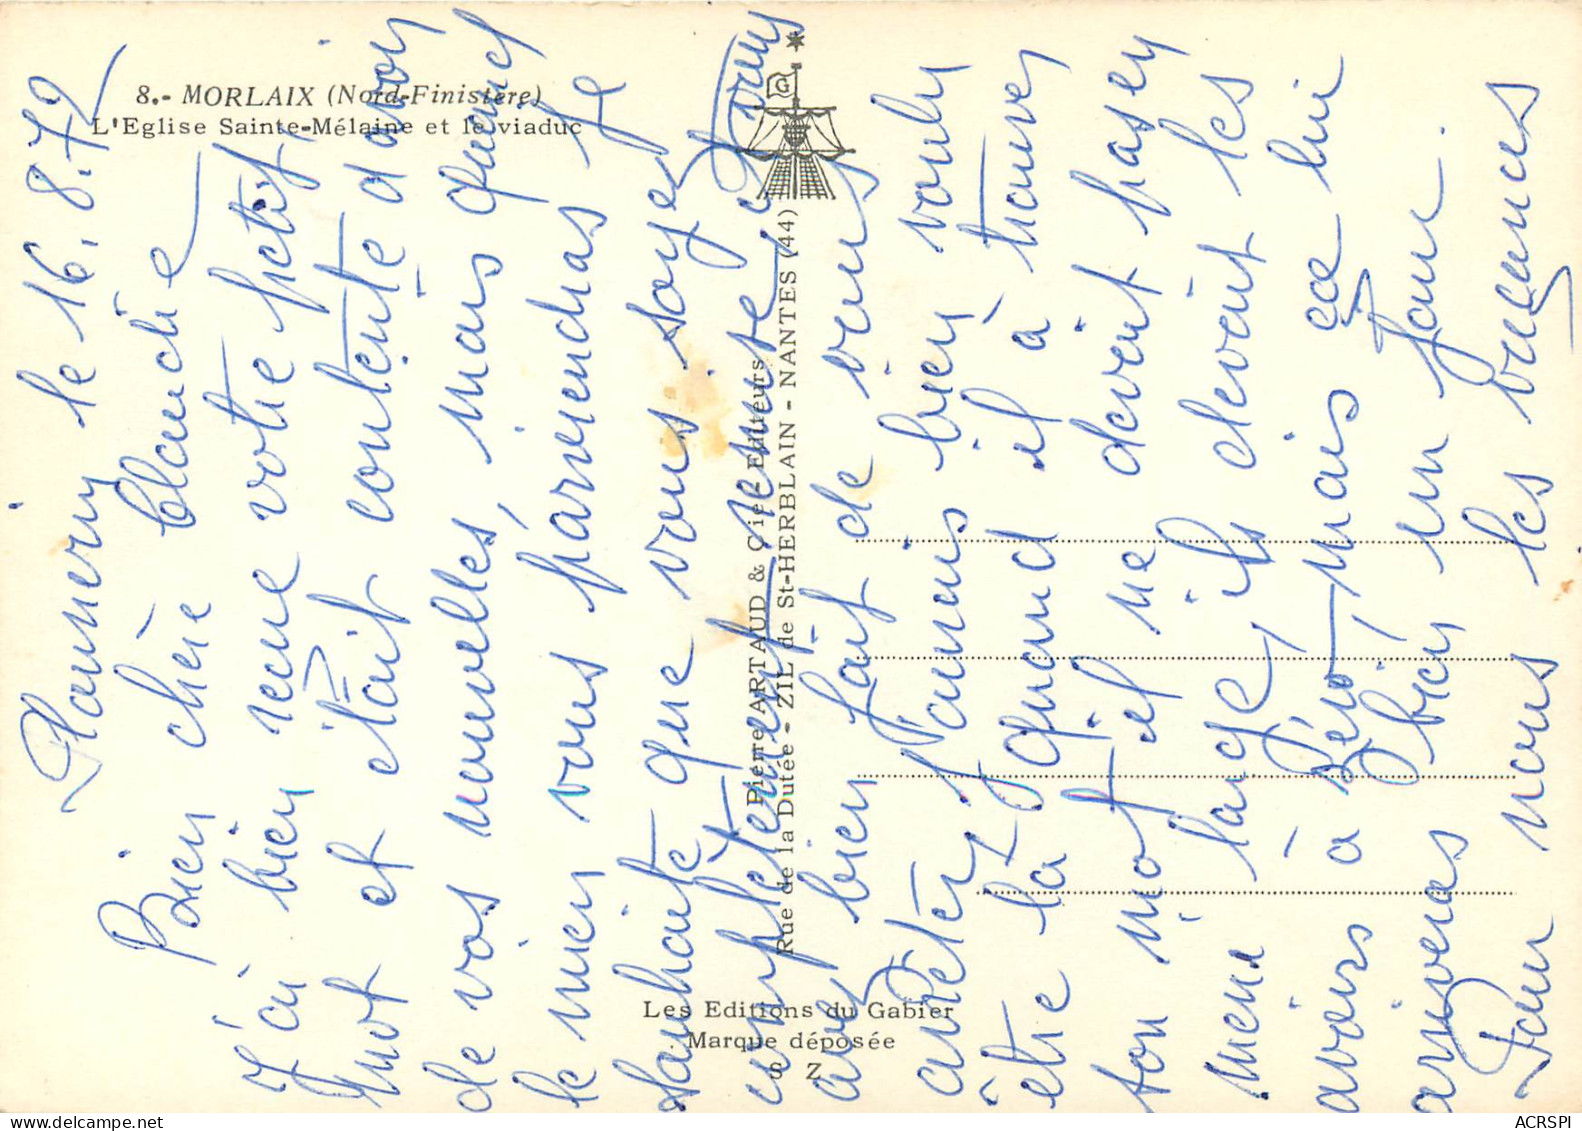 8.- MORLAIX (Nord-Finistère)
L'Eglise Sainte-Mélaine et le viaduc
Pierre ARTAUD & Cie - Editeurs
Rue de la Dutée - ZIL de St-HERBLAIN - NANTES (44)
Les Editions du Gabier
Marque déposée
S Z
G
le 16.8.72
Bien chère Claudie
J'ai bien reçue votre petit
mot et était contente d'avoir
de vos nouvelles, mais quand
le mien vous parviendras je
souhaite que vous soyez
complètement remise
avez bien fait de vous
arrêter, l'amis bien voulu
être là quand il à trouver
ton mot il ne devait pas en
mené large, ils devait les
avoirs à zéro, mais ce lui
arriveras bien un jour.
Pour nous les vacances
ACRSPI